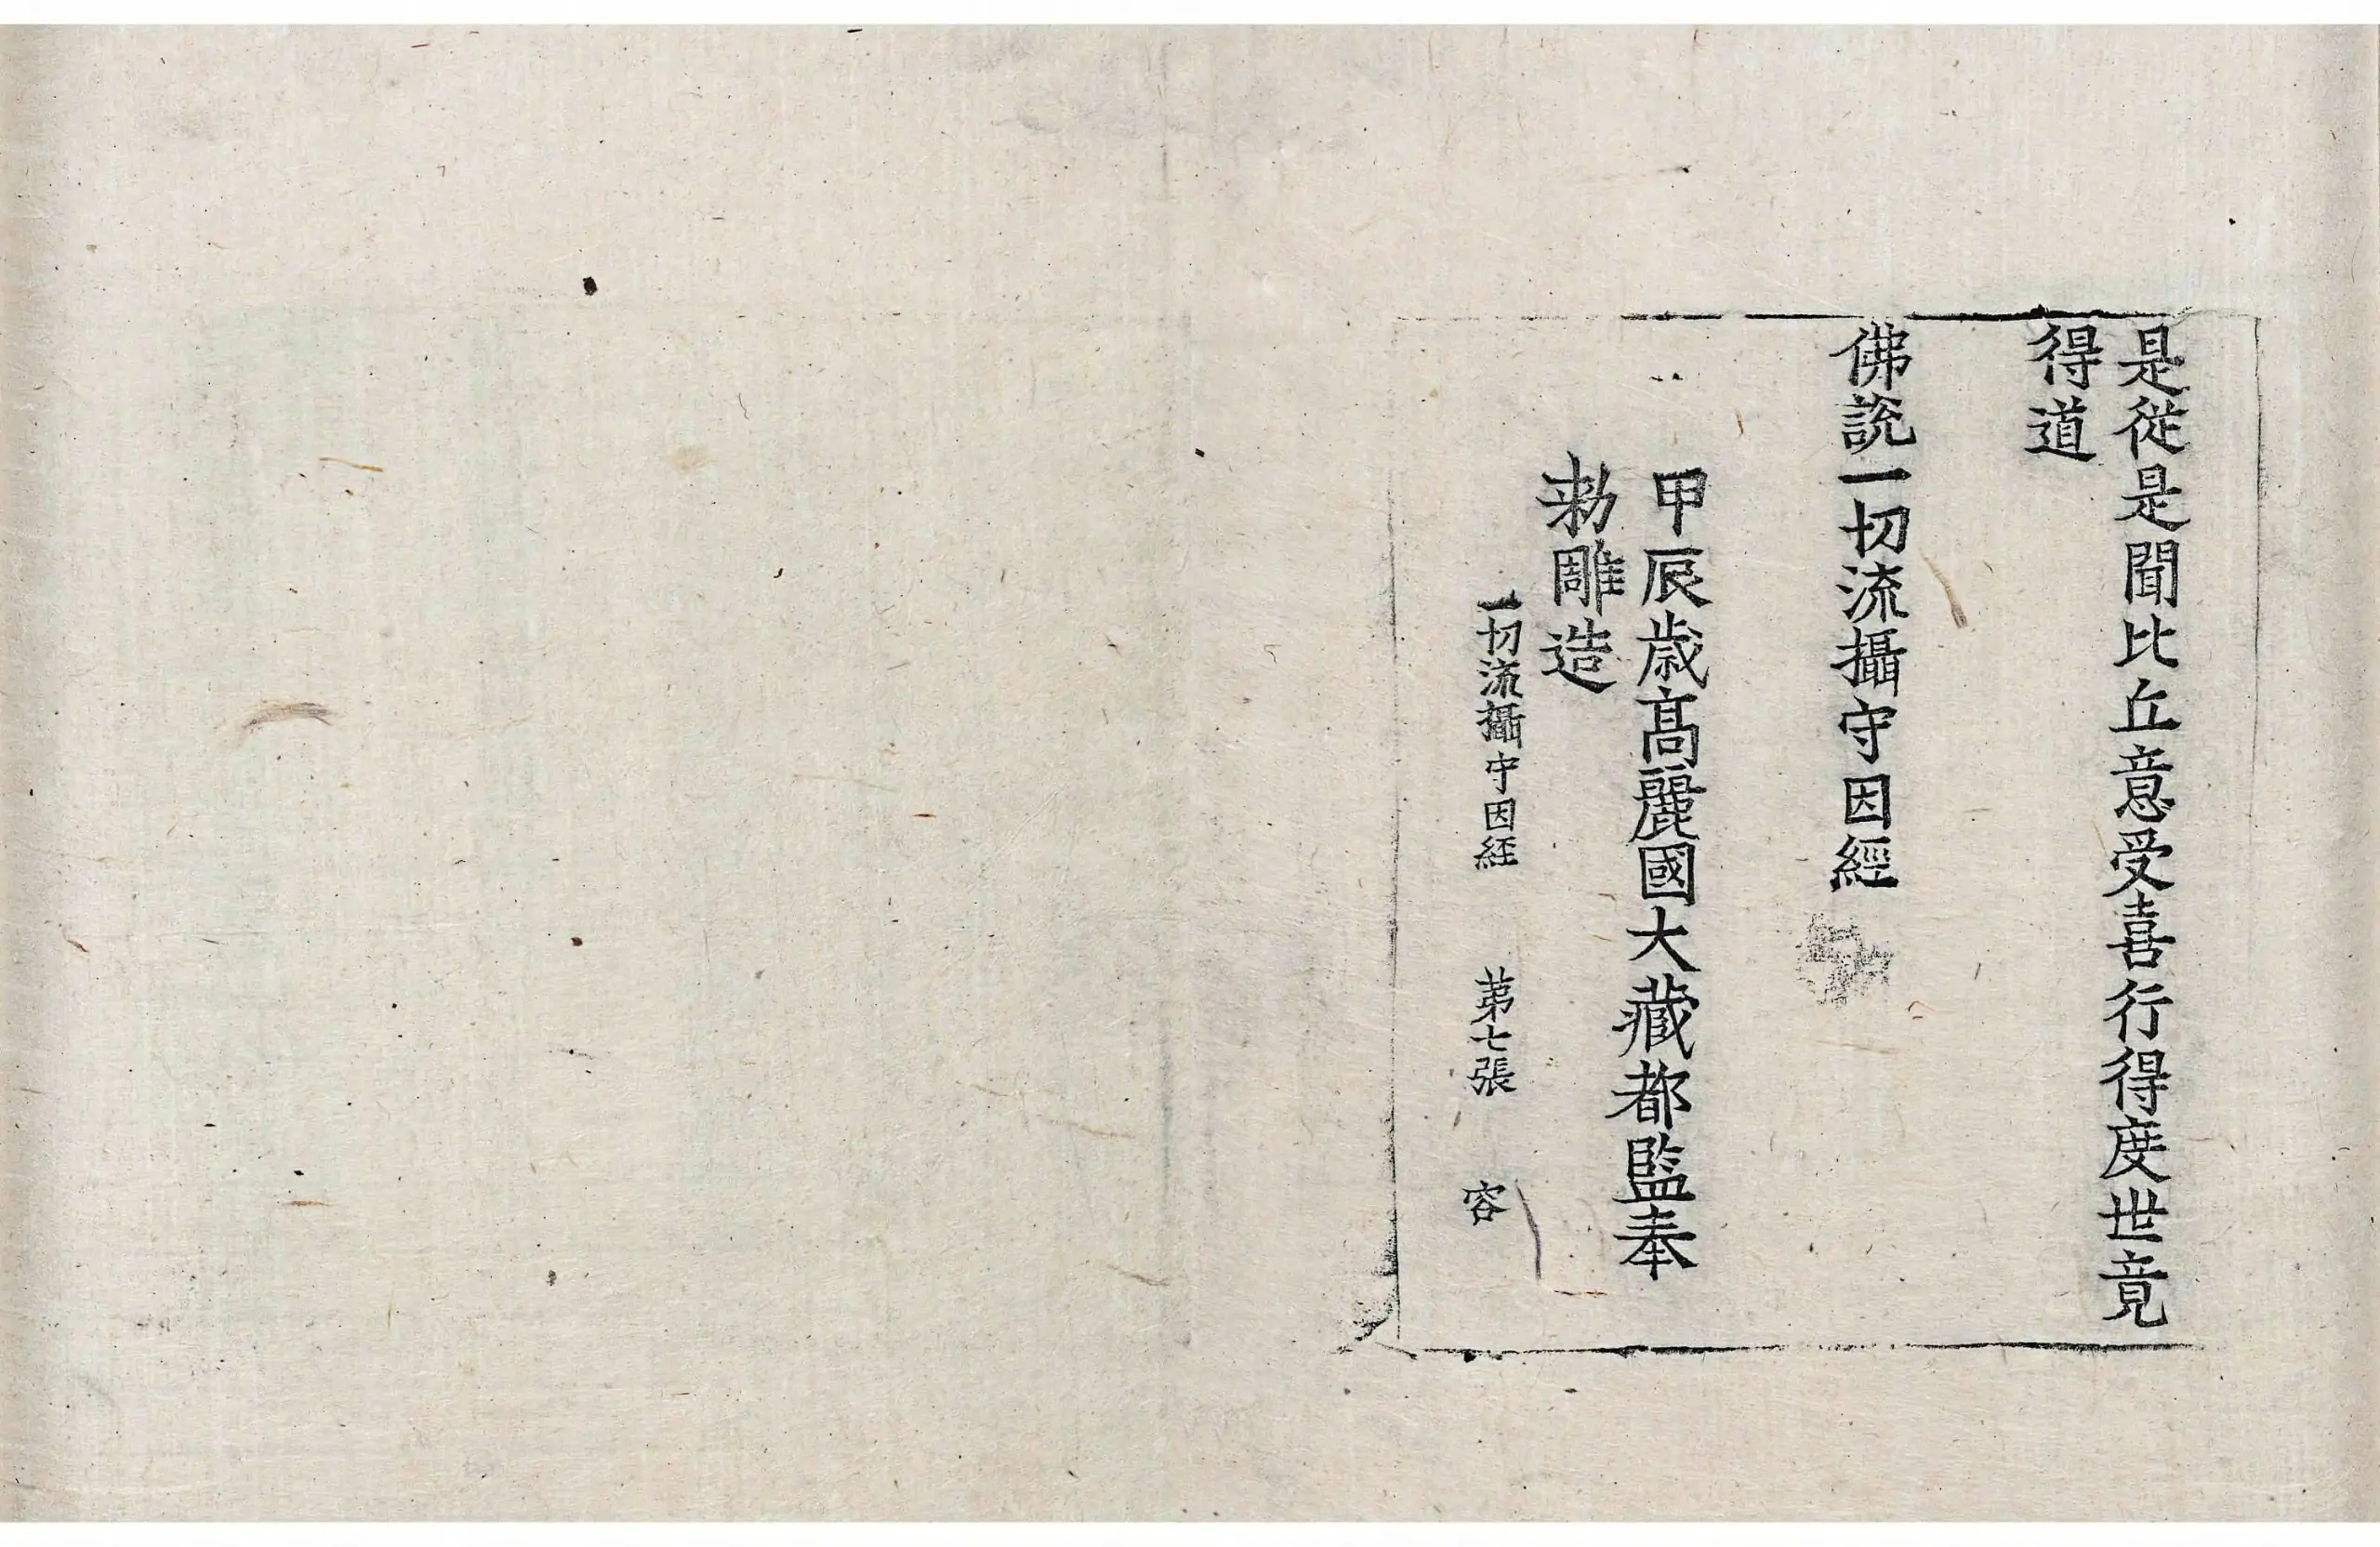 是從是聞比丘意受喜行得度世竟
得道
佛說一切流攝守因經
甲辰歲高麗國大藏都監奉
勑雕造
一切流攝守因經 第七張 容